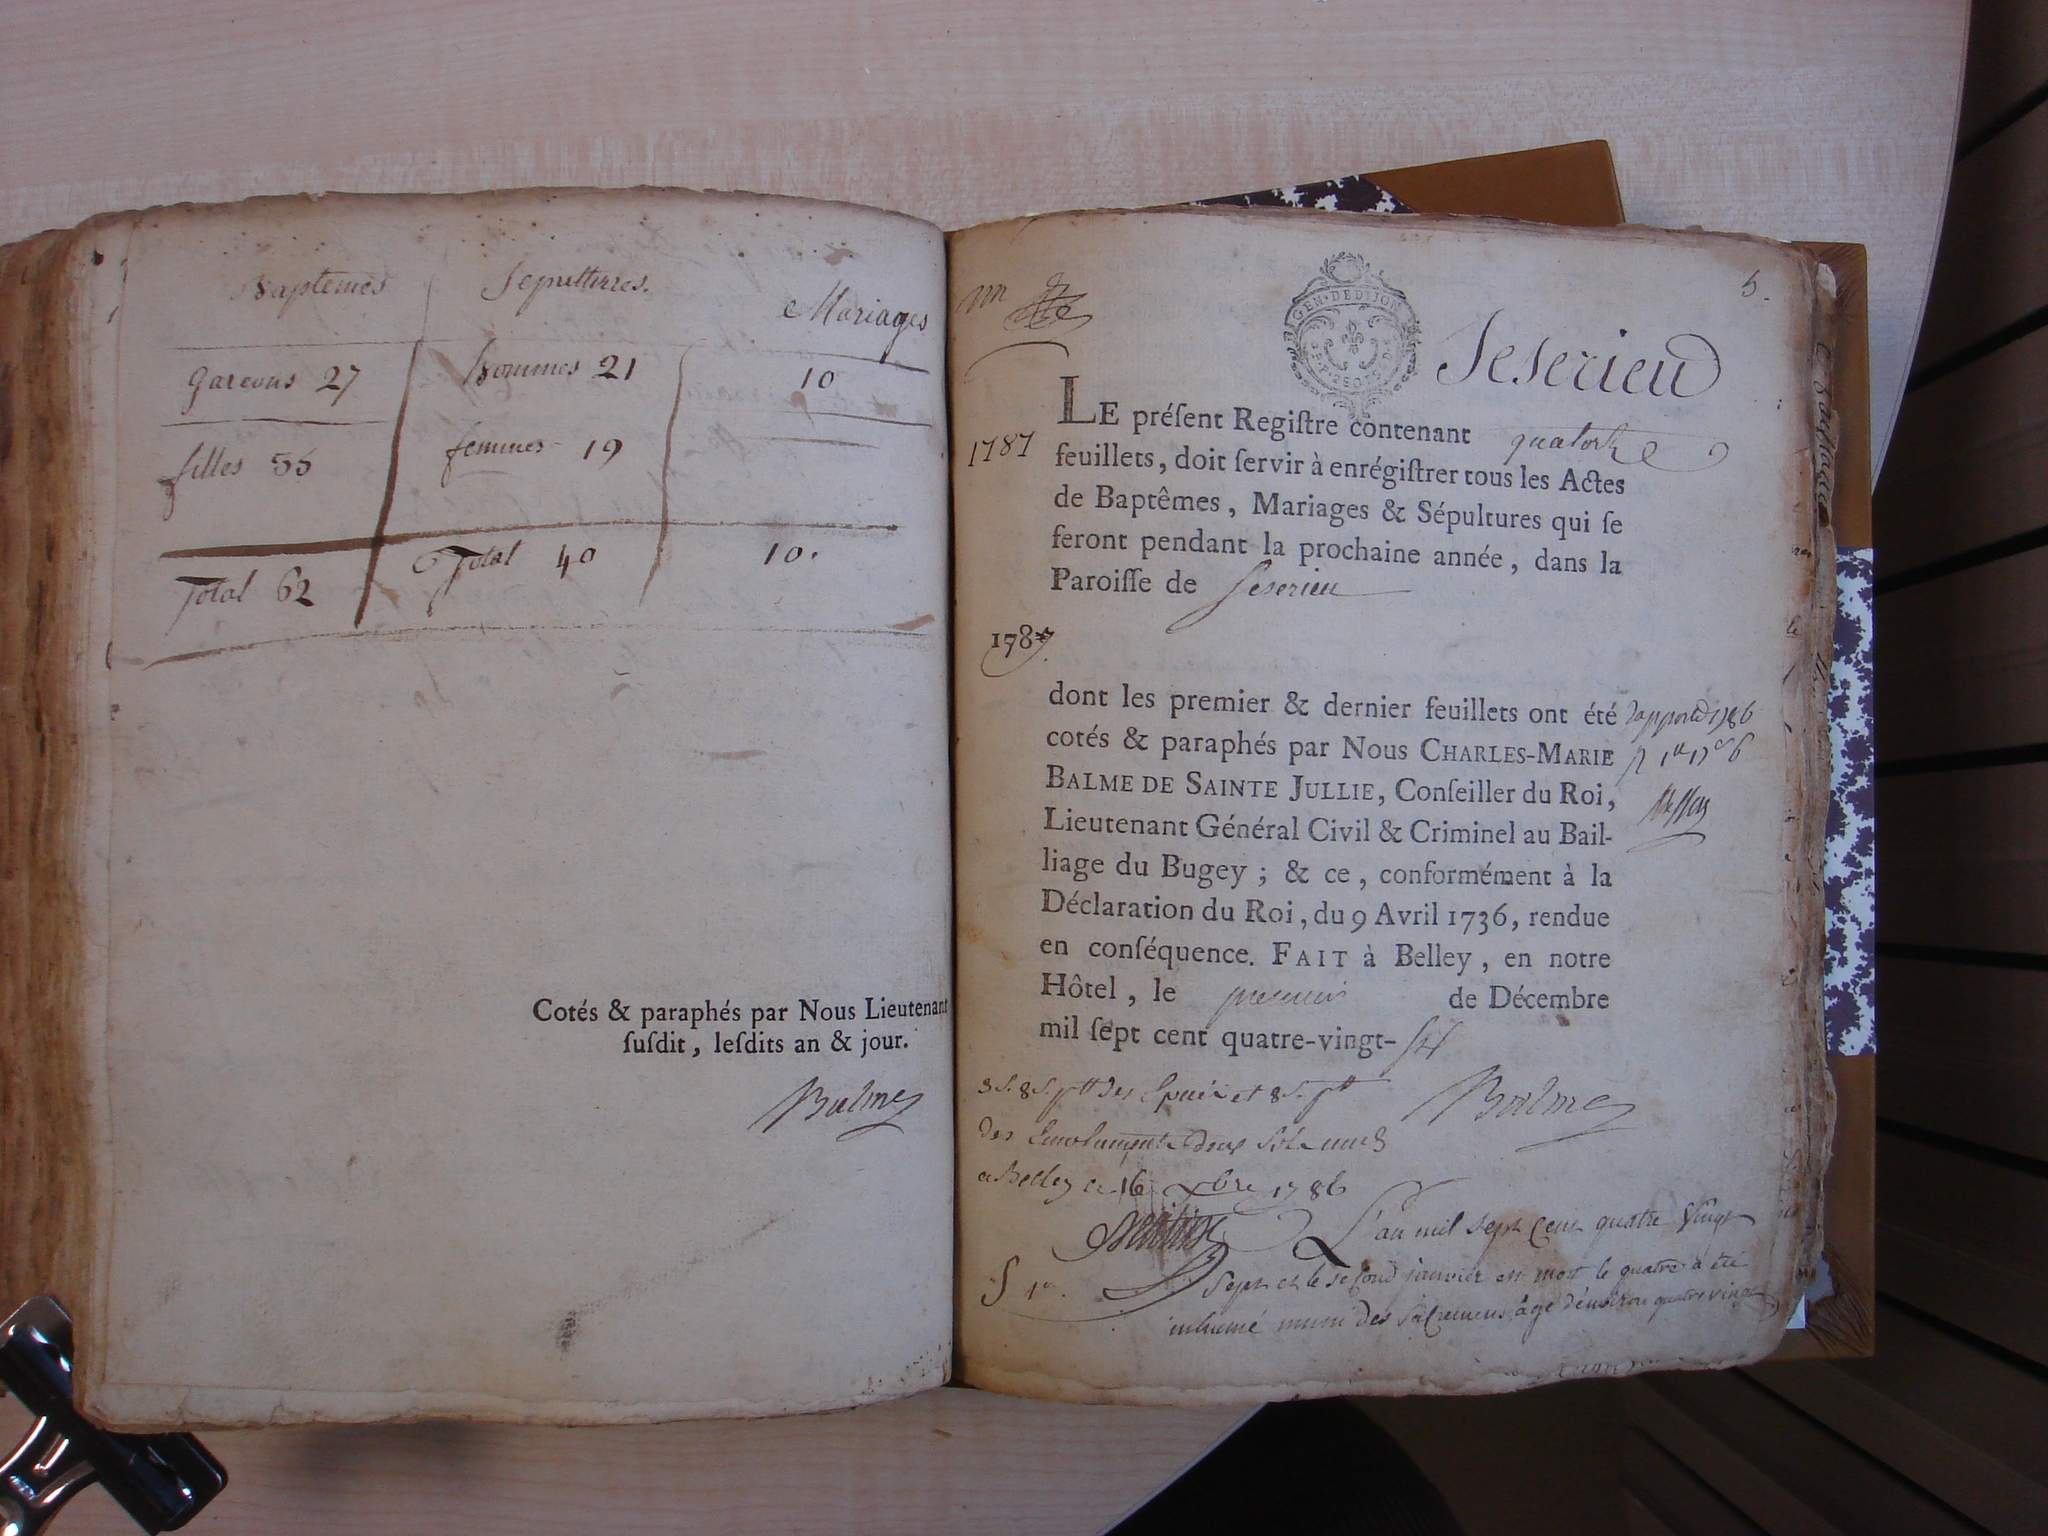 Baptemes
Sepultures.
Mariages
Garcons 27
hommes 21
10
filles 35
femmes 19
Total 62
Total 40
10.
Cotés & paraphés par Nous Lieutenant
ſuſdit, leſdits an & jour.
Balme
5.
GEN·DE DIJON
Seserieu
LE préſent Regiſtre contenant quatorze
1787
feuillets, doit ſervir à enrégiſtrer tous les Actes
de Baptêmes, Mariages & Sépultures qui ſe
feront pendant la prochaine année, dans la
Paroiſſe de Seserieu
1787
dont les premier & dernier feuillets ont été
cotés & paraphés par Nous CHARLES-MARIE
BALME DE SAINTE JULLIE, Conſeiller du Roi,
Lieutenant Général Civil & Criminel au Bail-
liage du Bugey ; & ce, conformément à la
Déclaration du Roi, du 9 Avril 1736, rendue
en conſéquence. FAIT à Belley, en notre
Hôtel, le premier de Décembre
mil ſept cent quatre-vingt-six
Balme
a Belley ce 16 xbre 1786
L'an mil sept cent quatre vingt
sept et le second janvier est mort le quatre a été
inhumé muni des sacremens âgé d'environ quatre vingt